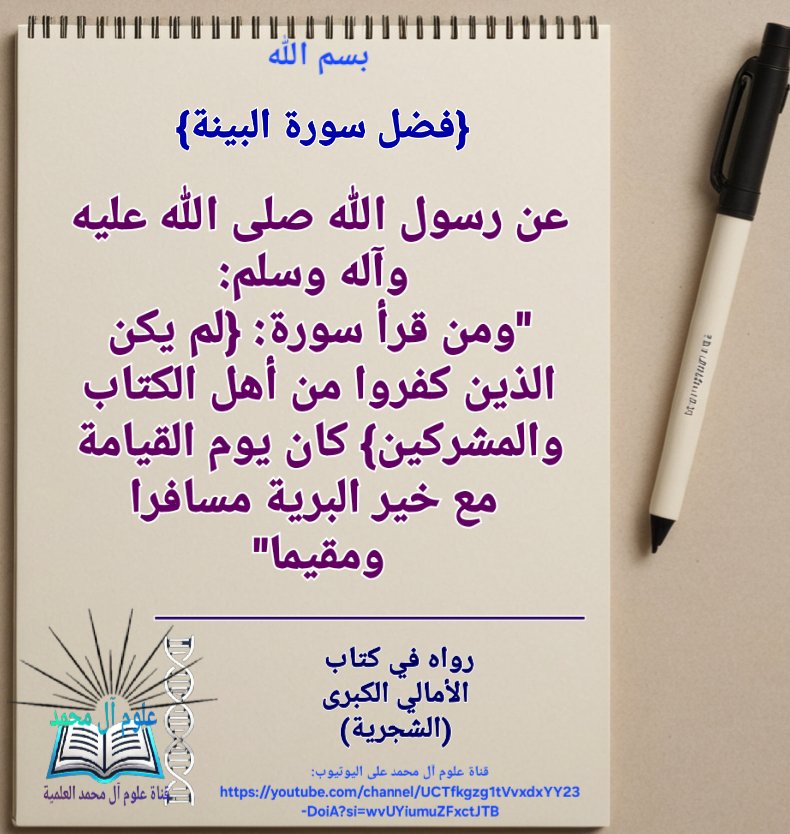 بسم الله
{فضل سورة البينة}
عن رسول الله صلى الله عليه
وآله وسلم:
"ومن قرأ سورة: {لم يكن
الذين كفروا من أهل الكتاب
والمشركين} كان يوم القيامة
مع خير البرية مسافرا
ومقيما"
رواه في كتاب
الأمالي الكبرى
(الشجرية)
علوم آل محمد
قناة علوم آل محمد العلمية
قناة علوم آل محمد على اليوتيوب:
https://youtube.com/channel/UCTfkgzg1tVvxdxYY23
-DoiA?si=wvUYiumuZFxctJTB